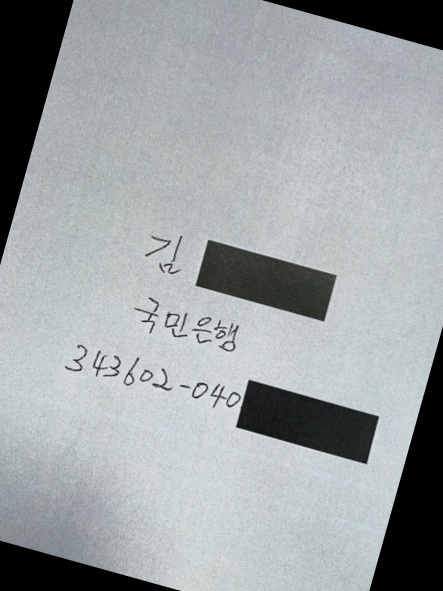 김
국민은행
343602-040